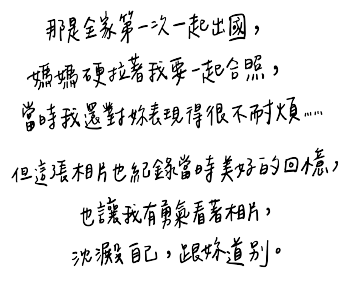 那是全家第一次一起出國，
媽媽硬拉著我要一起合照，
當時我還對妳表現得很不耐煩……
但這張相片也紀錄當時美好的回憶，
也讓我有勇氣看著相片，
沈澱自己，跟妳道別。